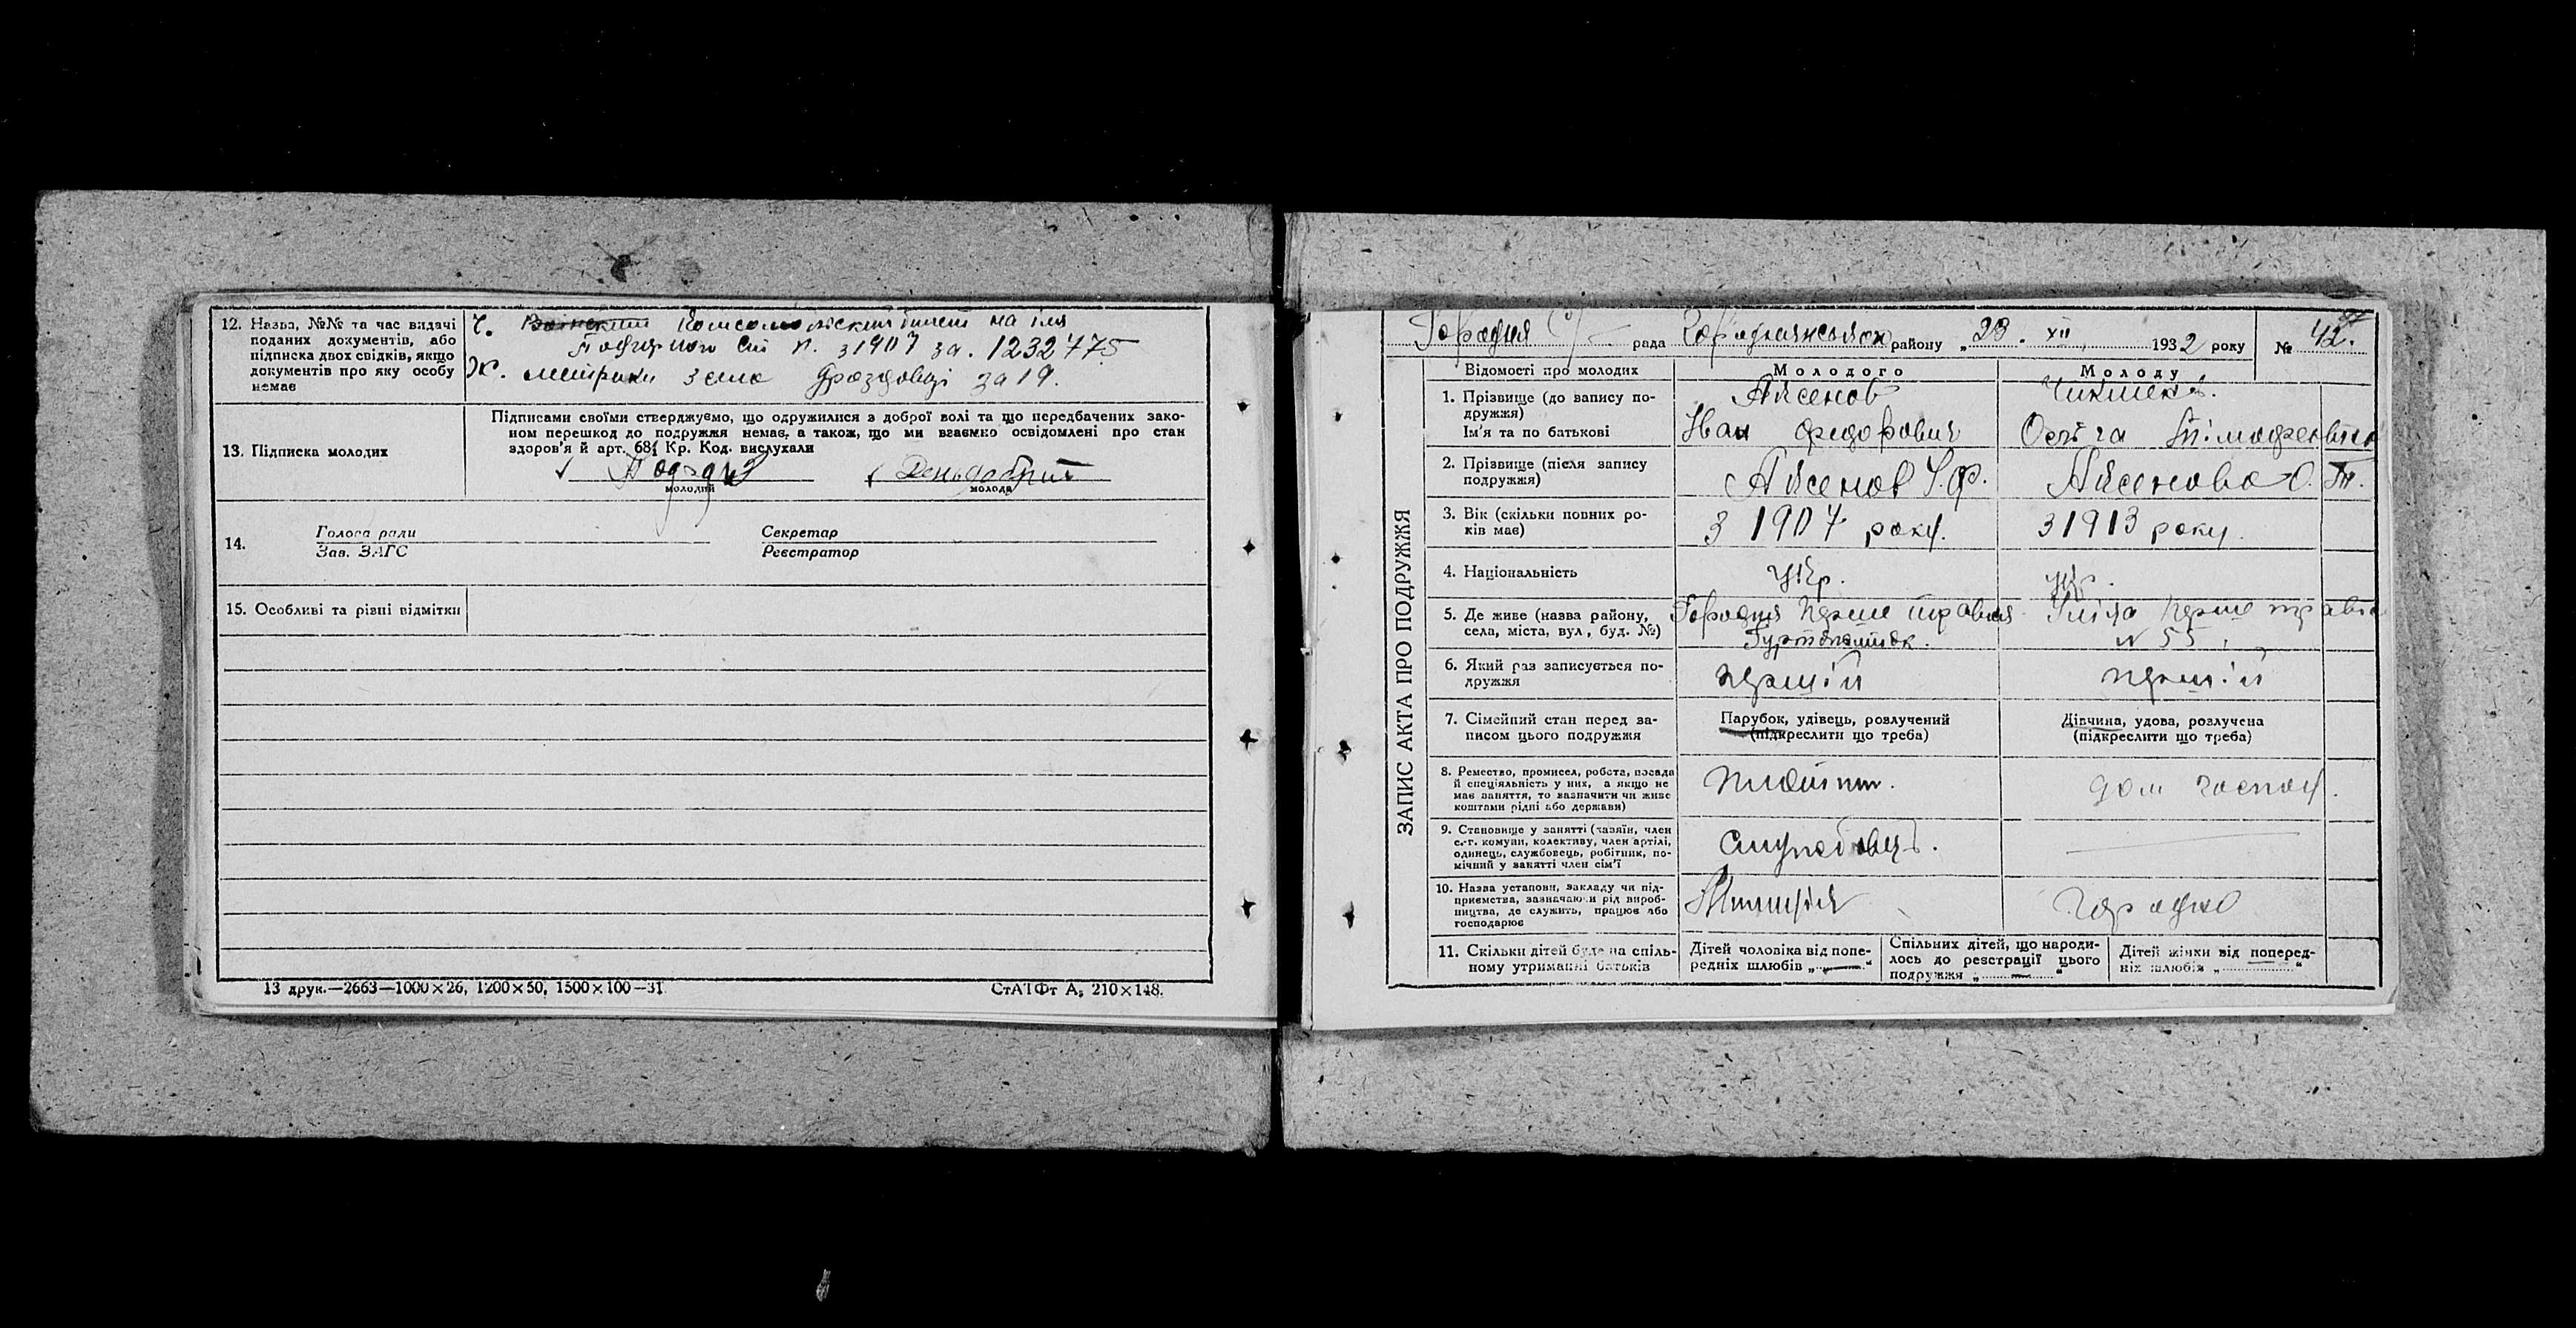 12. Назва, №№ та час видачі
поданих документів, або
підписка двох свідків, якщо
документів про яку особу
немає
Ч. Комсомольский билет на імя
П. з 1907 за. 1232775
Ж. метрики з села Дроздовиці за 19.
13. Підписка молодих
Підписами своїми стверджуємо, що одружилися з доброї волі та що передбачених зако-
ном перешкод до подружжя немає, а також, що ми взаємно освідомлені про стан
здоров'я й арт. 68¦ Кр. Код. вислухали
Деньдобрий
молодий
молода
14.
Голова ради
Зав. ЗАГС
Секретар
Реєстратор
15. Особливі та різні відмітки
13 друк.—2663—1000×26, 1200×50, 1500×100—31.
СтАТФт А₅ 210×148.
ЗАПИС АКТА ПРО ПОДРУЖЖЯ
Городня рада району „23. XII 1932 року № 42.
Відомості про молодих
Молодого
Молоду
1. Прізвище (до запису по-
дружжя)
Ім'я та по батькові
Айсенов
Іван Федорович
2. Прізвище (після запису
подружжя)
Айсенов І.Ф.
Айсенова О. Т.
3. Вік (скільки повних ро-
ків має)
З 1907 року.
З 1913 року.
4. Національність
Укр.
укр.
5. Де живе (назва району,
села, міста, вул, буд. №)
Городня Перше травня
Гуртожиток.
Уліца Перше травня
N 55
6. Який раз записується по-
дружжя
перший
перший
7. Сімейний стан перед за-
писом цього подружжя
Парубок, удівець, розлучений
(підкреслити що треба)
Дівчина, удова, розлучена
(підкреслити що треба)
8. Ремество, промисел, робота, посада
й спеціяльність у них, а якщо не
має заняття, то зазначити чи живе
коштами рідні або держави)
дом господ.
9. Становище у занятті (хазяїн, член
с.-г. комуни, колективу, член артілі,
одинець, службовець, робітник, по-
мічний у занятті член сім'ї
Службовець.
10. Назва установи, закладу чи під-
приємства, зазначаючи рід вироб-
ництва, де служить, працює або
господарює
Міліція
Городня
11. Скільки дітей буде на спіль-
ному утриманні батьків
Дітей чоловіка від попе-
редніх шлюбів „—“
Спільних дітей, що народи-
лось до реєстрації цього
подружжя „—“
Дітей жінки від поперед-
ніх шлюбів „ “